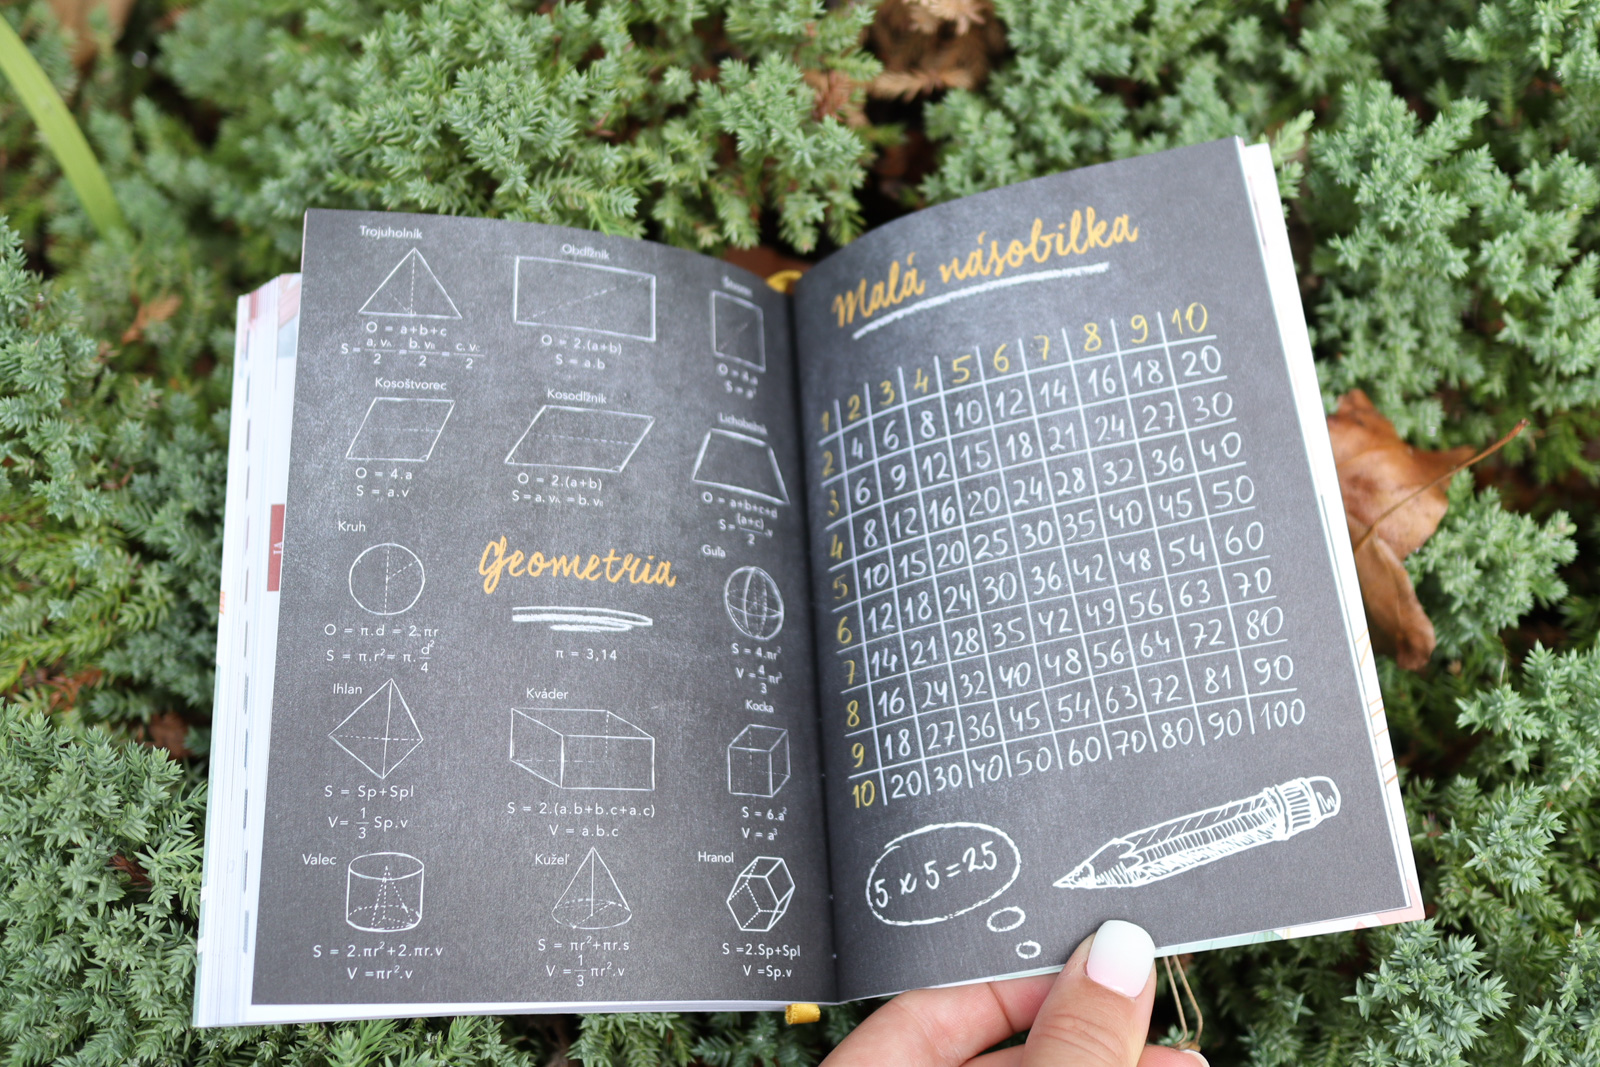 Trojuholník
O = a+b+c
S = a. vₐ/2 = b. v_b/2 = c. v_c/2
Obdĺžnik
O = 2.(a+b)
S = a.b
Štvorec
O = 4.a
S = a²
Kosoštvorec
O = 4.a
S = a.v
Kosodĺžnik
O = 2.(a+b)
S = a. vₐ = b. v_b
Lichobežník
O = a+b+c+d
S = (a+c).v/2
Kruh
O = π.d = 2.πr
S = π.r² = π. d²/4
Geometria
π = 3,14
Guľa
S = 4.πr²
V = 4/3 πr³
Ihlan
S = Sp+Spl
V = 1/3 Sp.v
Kváder
S = 2.(a.b+b.c+a.c)
V = a.b.c
Kocka
S = 6.a²
V = a³
Valec
S = 2.πr²+2.πr.v
V =πr².v
Kužeľ
S = πr²+πr.s
V = 1/3 πr².v
Hranol
S =2.Sp+Spl
V =Sp.v
Malá násobilka
1 2 3 4 5 6 7 8 9 10
2 4 6 8 10 12 14 16 18 20
3 6 9 12 15 18 21 24 27 30
4 8 12 16 20 24 28 32 36 40
5 10 15 20 25 30 35 40 45 50
6 12 18 24 30 36 42 48 54 60
7 14 21 28 35 42 49 56 63 70
8 16 24 32 40 48 56 64 72 80
9 18 27 36 45 54 63 72 81 90
10 20 30 40 50 60 70 80 90 100
5 x 5 = 25